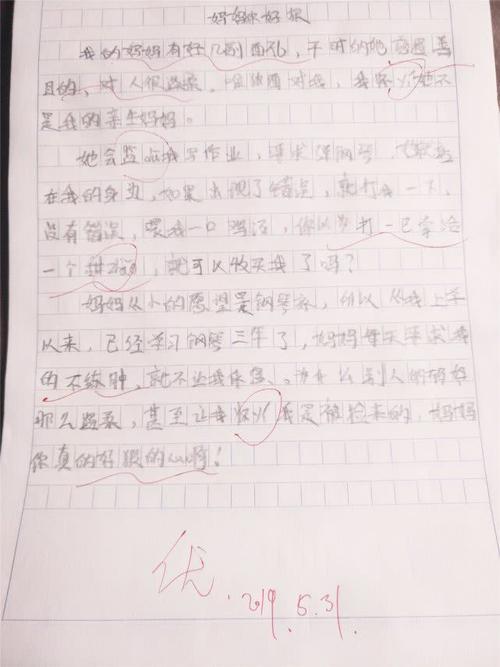 妈妈你好狠
我的妈妈有好几副面孔，平时的她慈眉善
目的，对人很温柔。但她面对我，我怀yi她不
是我的亲生妈妈。
她会监du我写作业，要求弹钢琴，
在我的身边，如果出现了错误，就打我一下，
没有错误，喂我一口鸡汤，你以为打一巴掌给
一个甜zǎo，就可以收买我了吗？
妈妈从小的愿望是钢琴家，所以从我上学
以来，已经学习钢琴三年了，妈妈每天要求我
的不练肿，就不让我休息。为什么别人的妈妈
那么温柔，甚至让我怀yi我是被捡来的，妈妈
你真的好狠的心啊！
优
2019.5.31.